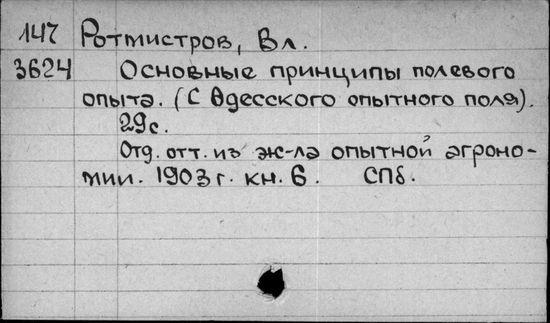 147 Ротмистров, Вл.
3624 Основные принципы полевого
опыта. (С Одесского опытного поля).
29с.
Отд. отт. из ж-ла опытной агроно-
мии. 1903г. кн. 6. СПб.